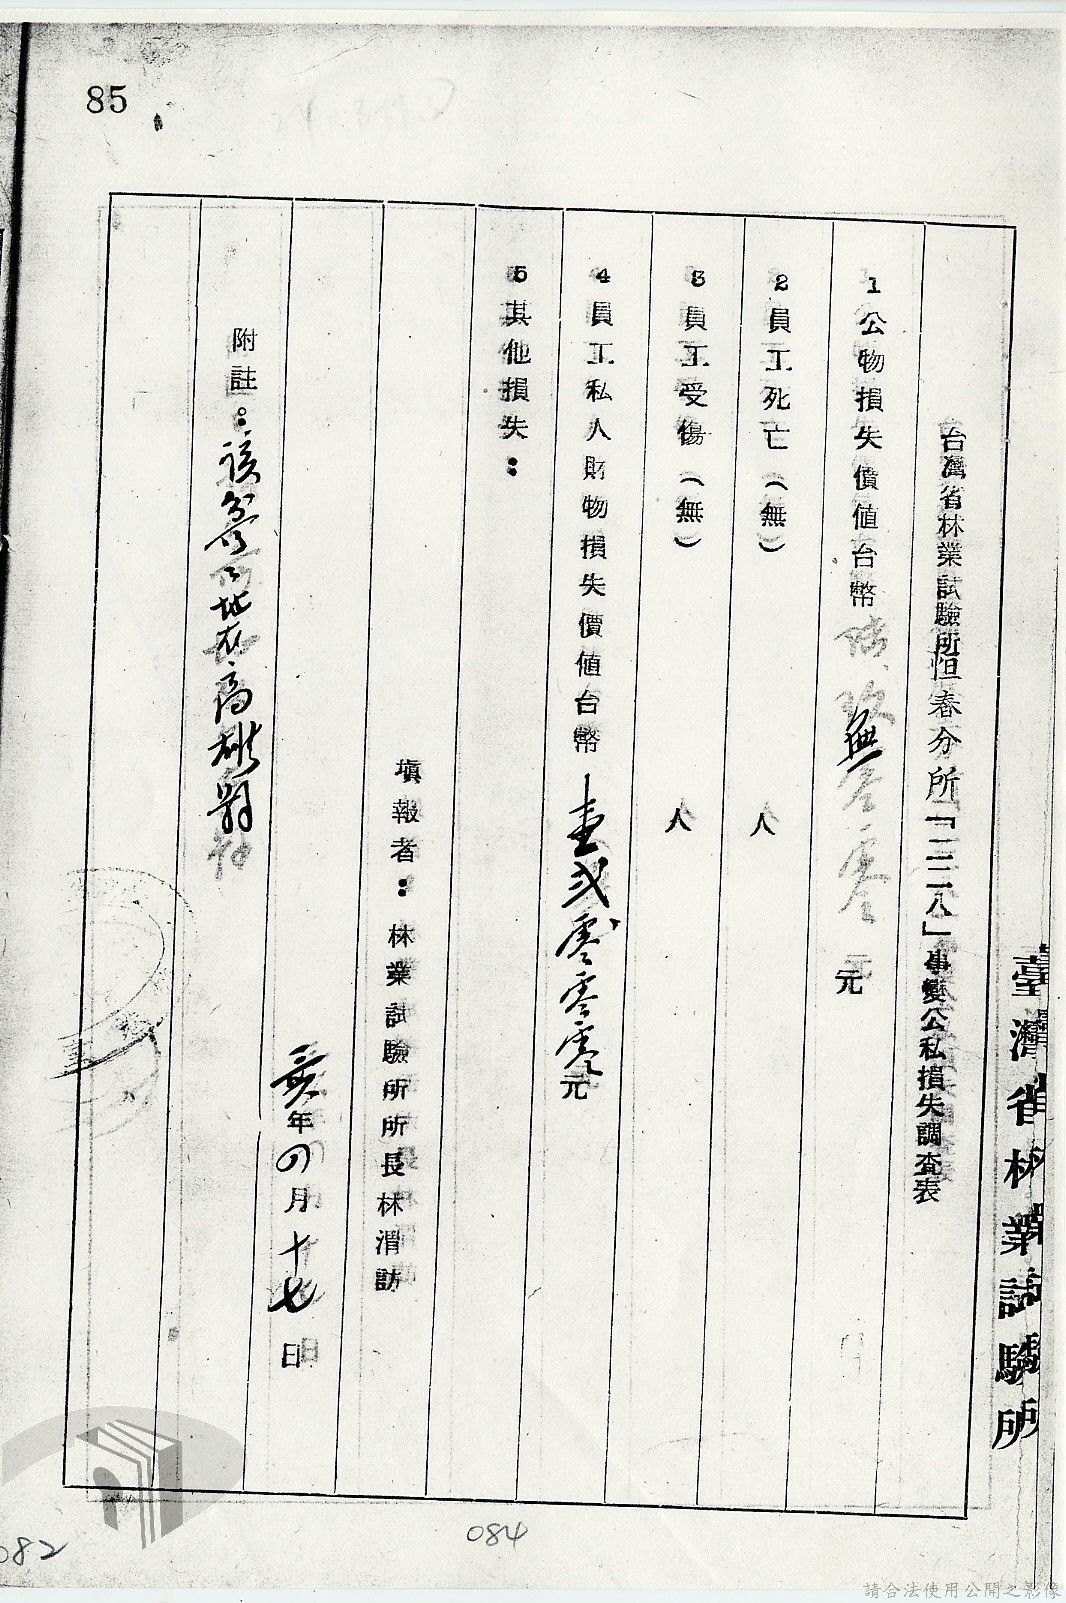 85
台灣省林業試驗所恒春分所「二二八」事變公私損失調查表
1公物損失價值台幣無元
2員工死亡(無) 人
3員工受傷(無) 人
4員工私人財物損失價值台幣壹弍零零零元
5其他損失：
填報者：林業試驗所所長林渭訪
年四月十七日
附註：該分所地在高雄縣
臺灣省林業試驗所
082
084
請合法使用公開之影像